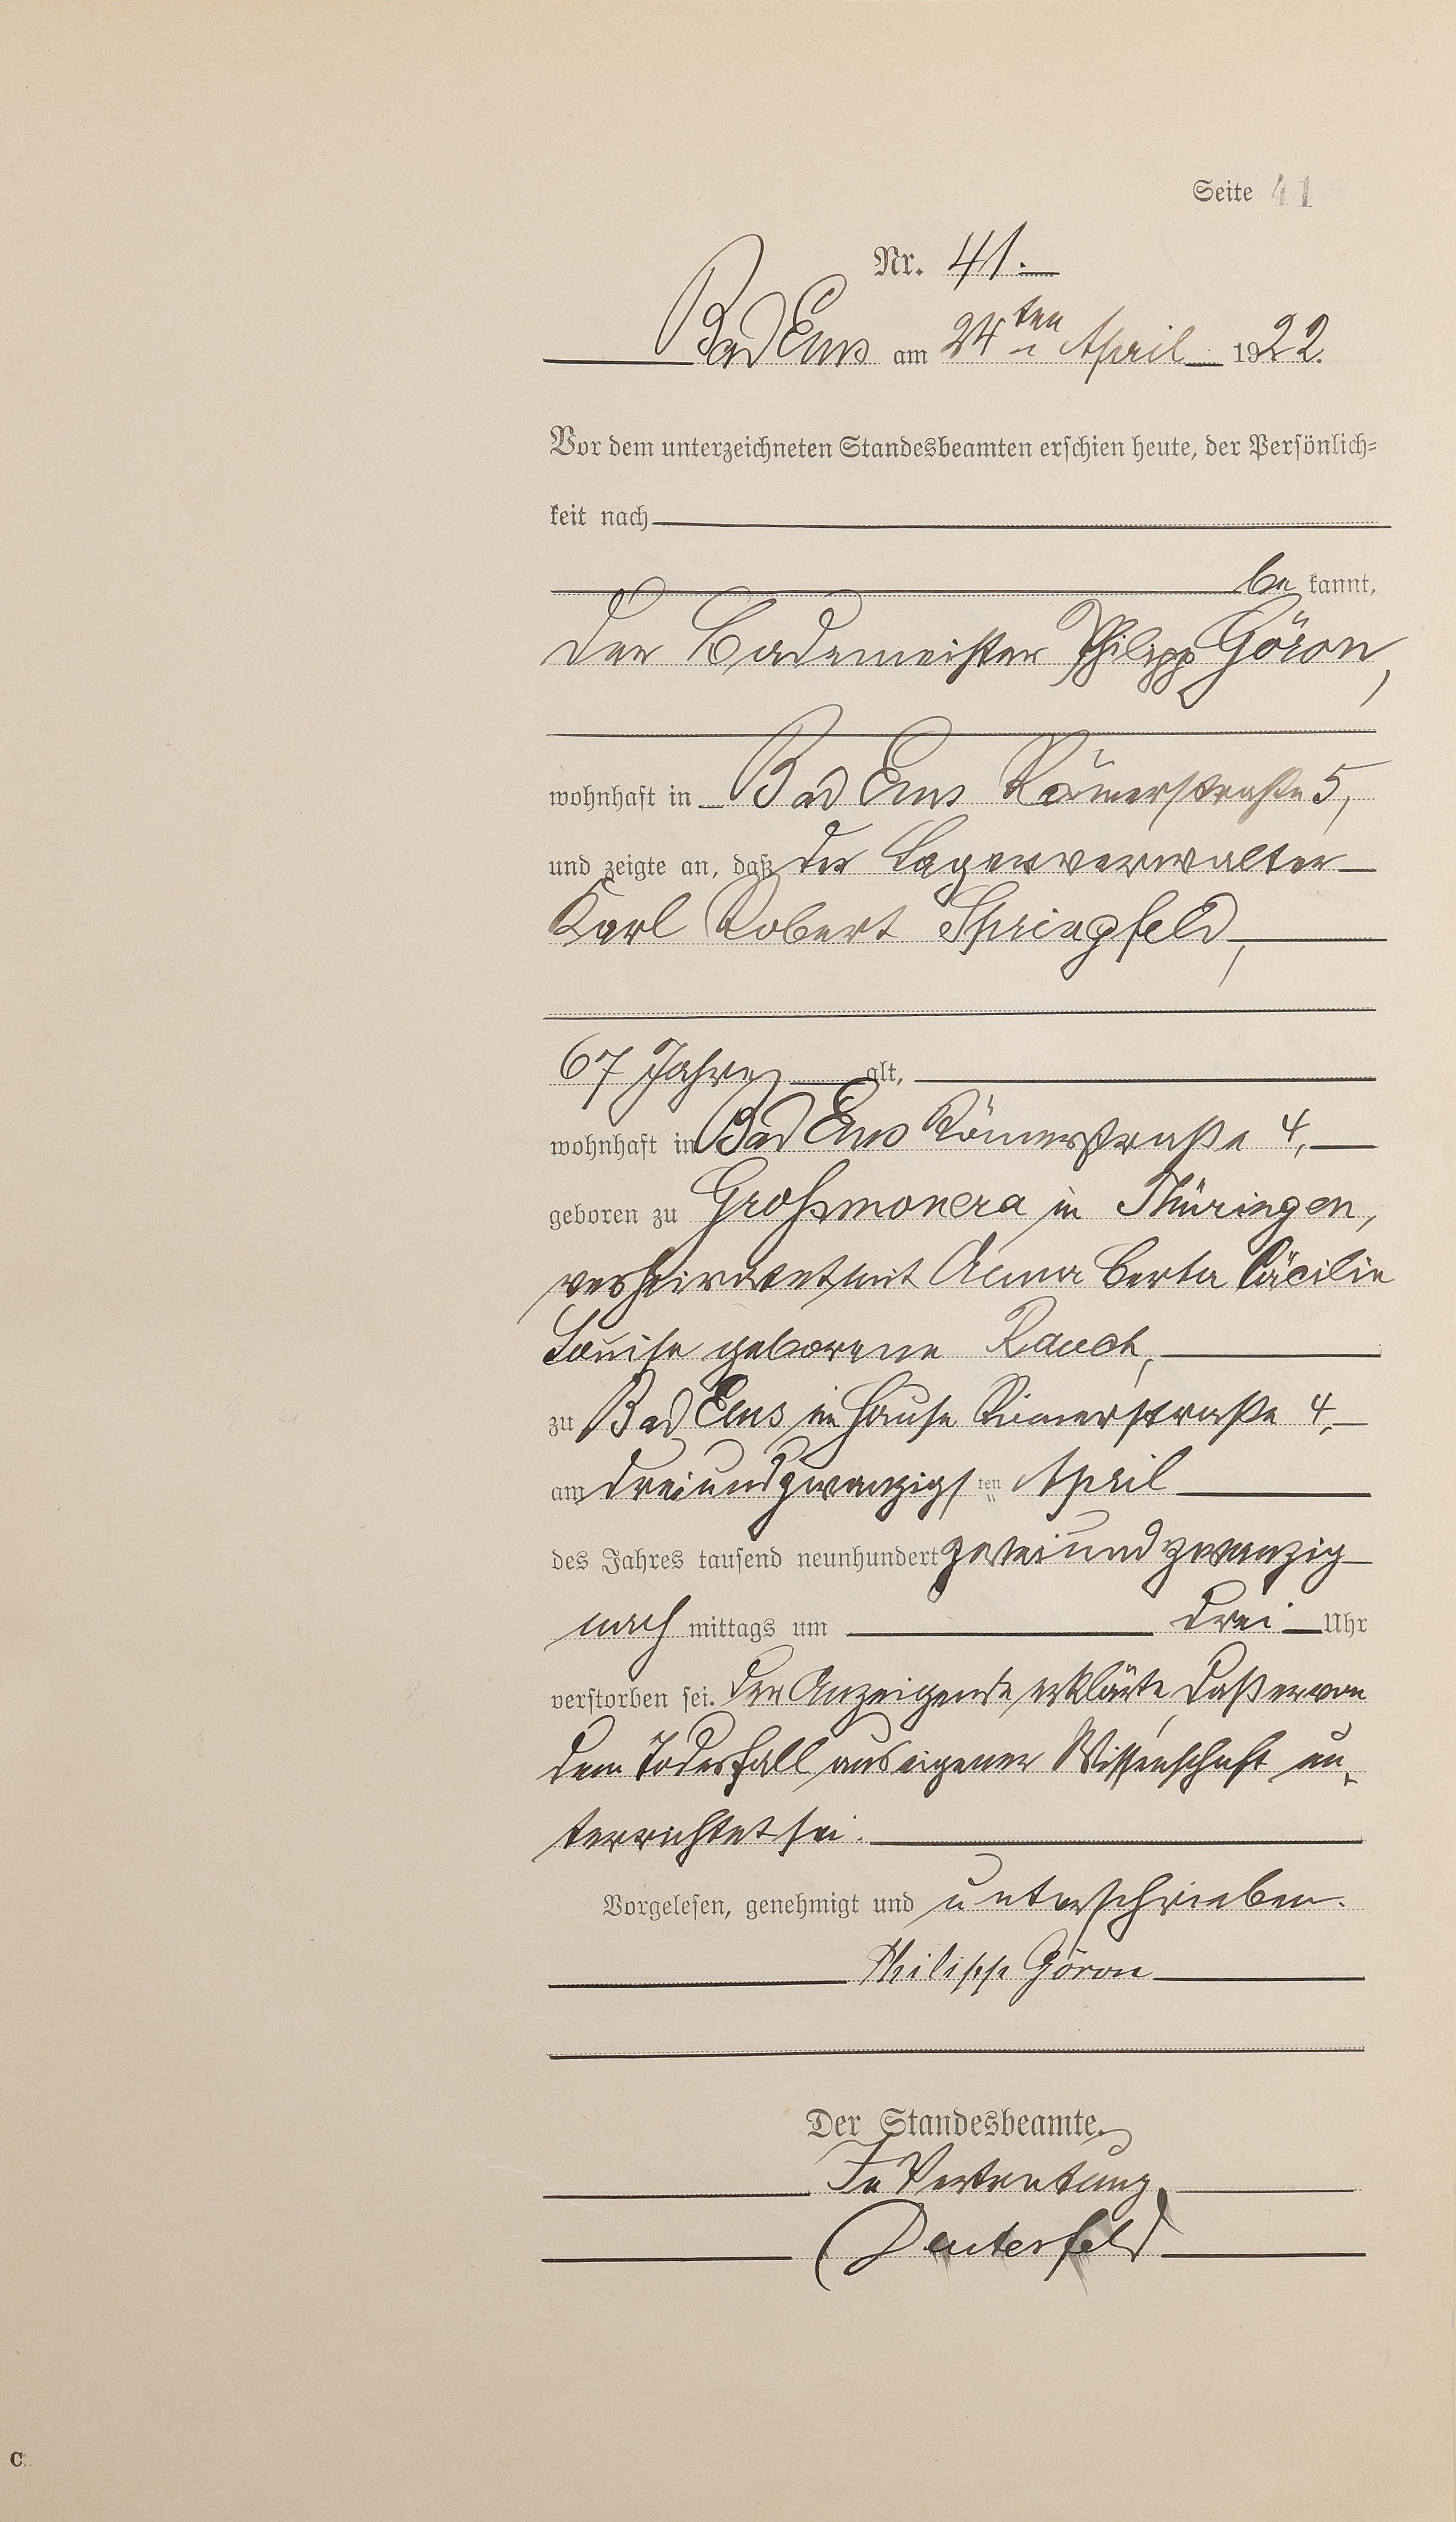 Seite 41
Nr. 41.
Bad Ems am 24ten April 1922.
Vor dem unterzeichneten Standesbeamten erschien heute, der Persönlich-
keit nach
be kannt,
der Bademeister Philipp Göron,
wohnhaft in Bad Ems Römerstraße 5,
und zeigte an, daß der Lagerverwalter
Karl Robert Springfeld,
67 Jahre alt,
wohnhaft in Bad Ems Römerstraße 4,
geboren zu Großmonera in Thüringen,
verheiratet mit Anna Berta Cäcilie
Louise geborene Rauch,
zu Bad Ems im Hause Römerstraße 4,
am dreiundzwanzigsten April
des Jahres tausend neunhundert zweiundzwanzig
nach mittags um drei Uhr
verstorben sei. Der Anzeigende erklärte, daß er von
dem Todesfall aus eigener Wissenschaft un-
terrichtet sei.
Vorgelesen, genehmigt und unterschrieben.
Philipp Göron
Der Standesbeamte.
In Vertretung.
Deuterfeld
C